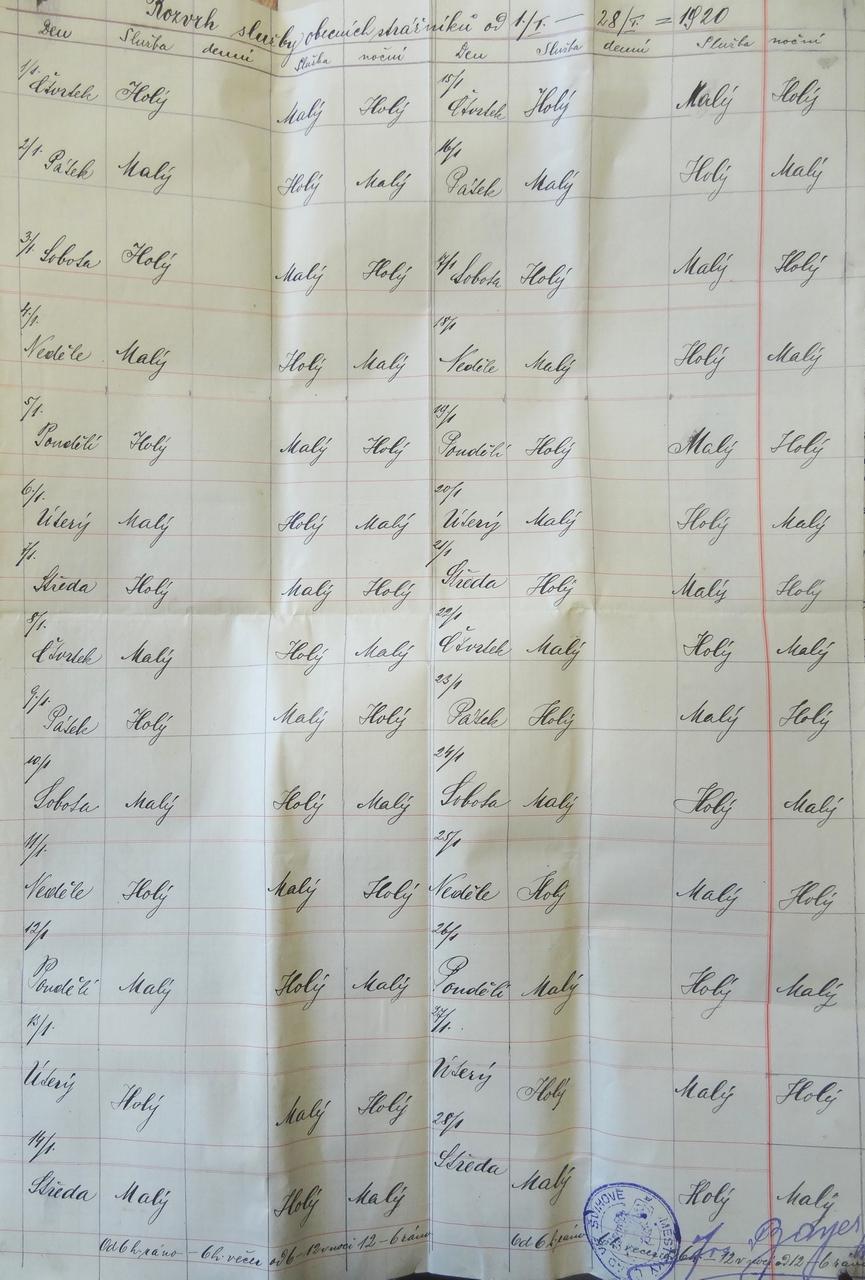 Rozvrh služby obecních strážníků od 1/1. — 28/I. = 1920
Den Služba denní Služba noční Den Služba denní Služba noční
1/1. Čtvrtek Holý Malý Holý 15/1 Čtvrtek Holý Malý Holý
2/1. Pátek Malý Holý Malý 16/1 Pátek Malý Holý Malý
3/1. Sobota Holý Malý Holý 17/1 Sobota Holý Malý Holý
4/1. Neděle Malý Holý Malý 18/1 Neděle Malý Holý Malý
5/1. Pondělí Holý Malý Holý 19/1 Pondělí Holý Malý Holý
6/1. Úterý Malý Holý Malý 20/1 Úterý Malý Holý Malý
7/1. Středa Holý Malý Holý 21/1 Středa Holý Malý Holý
8/1. Čtvrtek Malý Holý Malý 22/1 Čtvrtek Malý Holý Malý
9/1. Pátek Holý Malý Holý 23/1 Pátek Holý Malý Holý
10/1 Sobota Malý Holý Malý 24/1 Sobota Malý Holý Malý
11/1. Neděle Holý Malý Holý 25/1 Neděle Holý Malý Holý
12/1 Pondělí Malý Holý Malý 26/1 Pondělí Malý Holý Malý
13/1. Úterý Holý Malý Holý 27/1. Úterý Holý Malý Holý
14/1. Středa Malý Holý Malý 28/1 Středa Malý Holý Malý
Od 6 h. ráno — 6 h. večer od 6 — 12 v noci 12 — 6 ráno Od 6 h. ráno 6 h. večer 6 — 12 v noci od 12 — 6 ráno